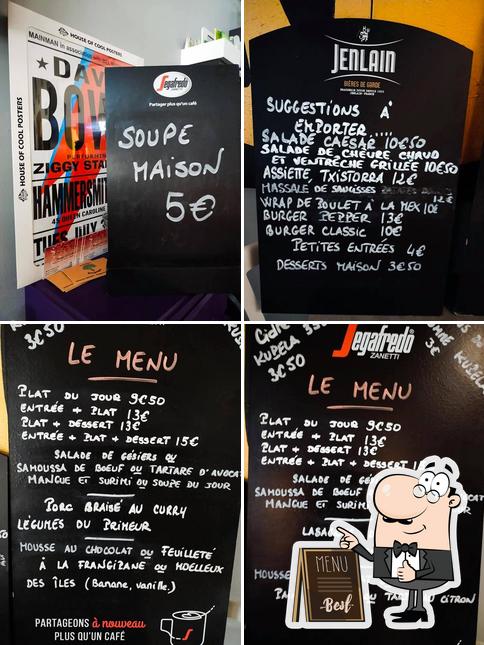 HOUSE OF COOL POSTERS
MAINMAN in association with
DAV
BOW
PERFORMING
ZIGGY STA
HAMMERSMIT
45 QUEEN CAROLINE
TUES. JULY 3
HOUSE OF COOL POSTERS
Segafredo
ZANETTI
Partager plus qu'un café
SOUPE
MAISON
5€
JENLAIN
BIÈRES DE GARDE
SUGGESTIONS À
EMPORTER....
SALADE CAESAR 10€50
SALADE DE CHÈVRE CHAUD
ET VENTRÈCHE GRILLÉE 10€50
ASSIETTE TXISTORRA 12€
MASSALE DE SAUCISSES
12€
WRAP DE POULET A LA MEX 10€
BURGER PEPPER 13€
BURGER CLASSIC 10€
PETITES ENTRÉES 4€
DESSERTS MAISON 3€50
3€50
LE MENU
PLAT DU JOUR 9€50
ENTRÉE + PLAT 13€
PLAT + DESSERT 13€
ENTRÉE + PLAT + DESSERT 15€
SALADE DE GÉSIERS OU
SAMOUSSA DE BOEUF OU TARTARE D'AVOCAT
MANGUE ET SURIMI OU SOUPE DU JOUR
PORC BRAISÉ AU CURRY
LÉGUMES DU PRIMEUR
MOUSSE AU CHOCOLAT OU FEUILLETÉ
À LA FRANGIPANE OU MOELLEUX
DES ÎLES (Banane, vanille.)
PARTAGEONS à nouveau
PLUS QU'UN CAFÉ
Cidre
KUPELA 33
3€50
Segafredo
ZANETTI
3€
KUPELA
LE MENU
PLAT DU JOUR 9€50
ENTRÉE + PLAT 13€
PLAT + DESSERT 13€
ENTRÉE + PLAT + DESSERT
SALADE DE GÉ
SAMOUSSA DE BOEUF
MANGUE ET SURIM
MOUSSE
CITRON
MENU
Best